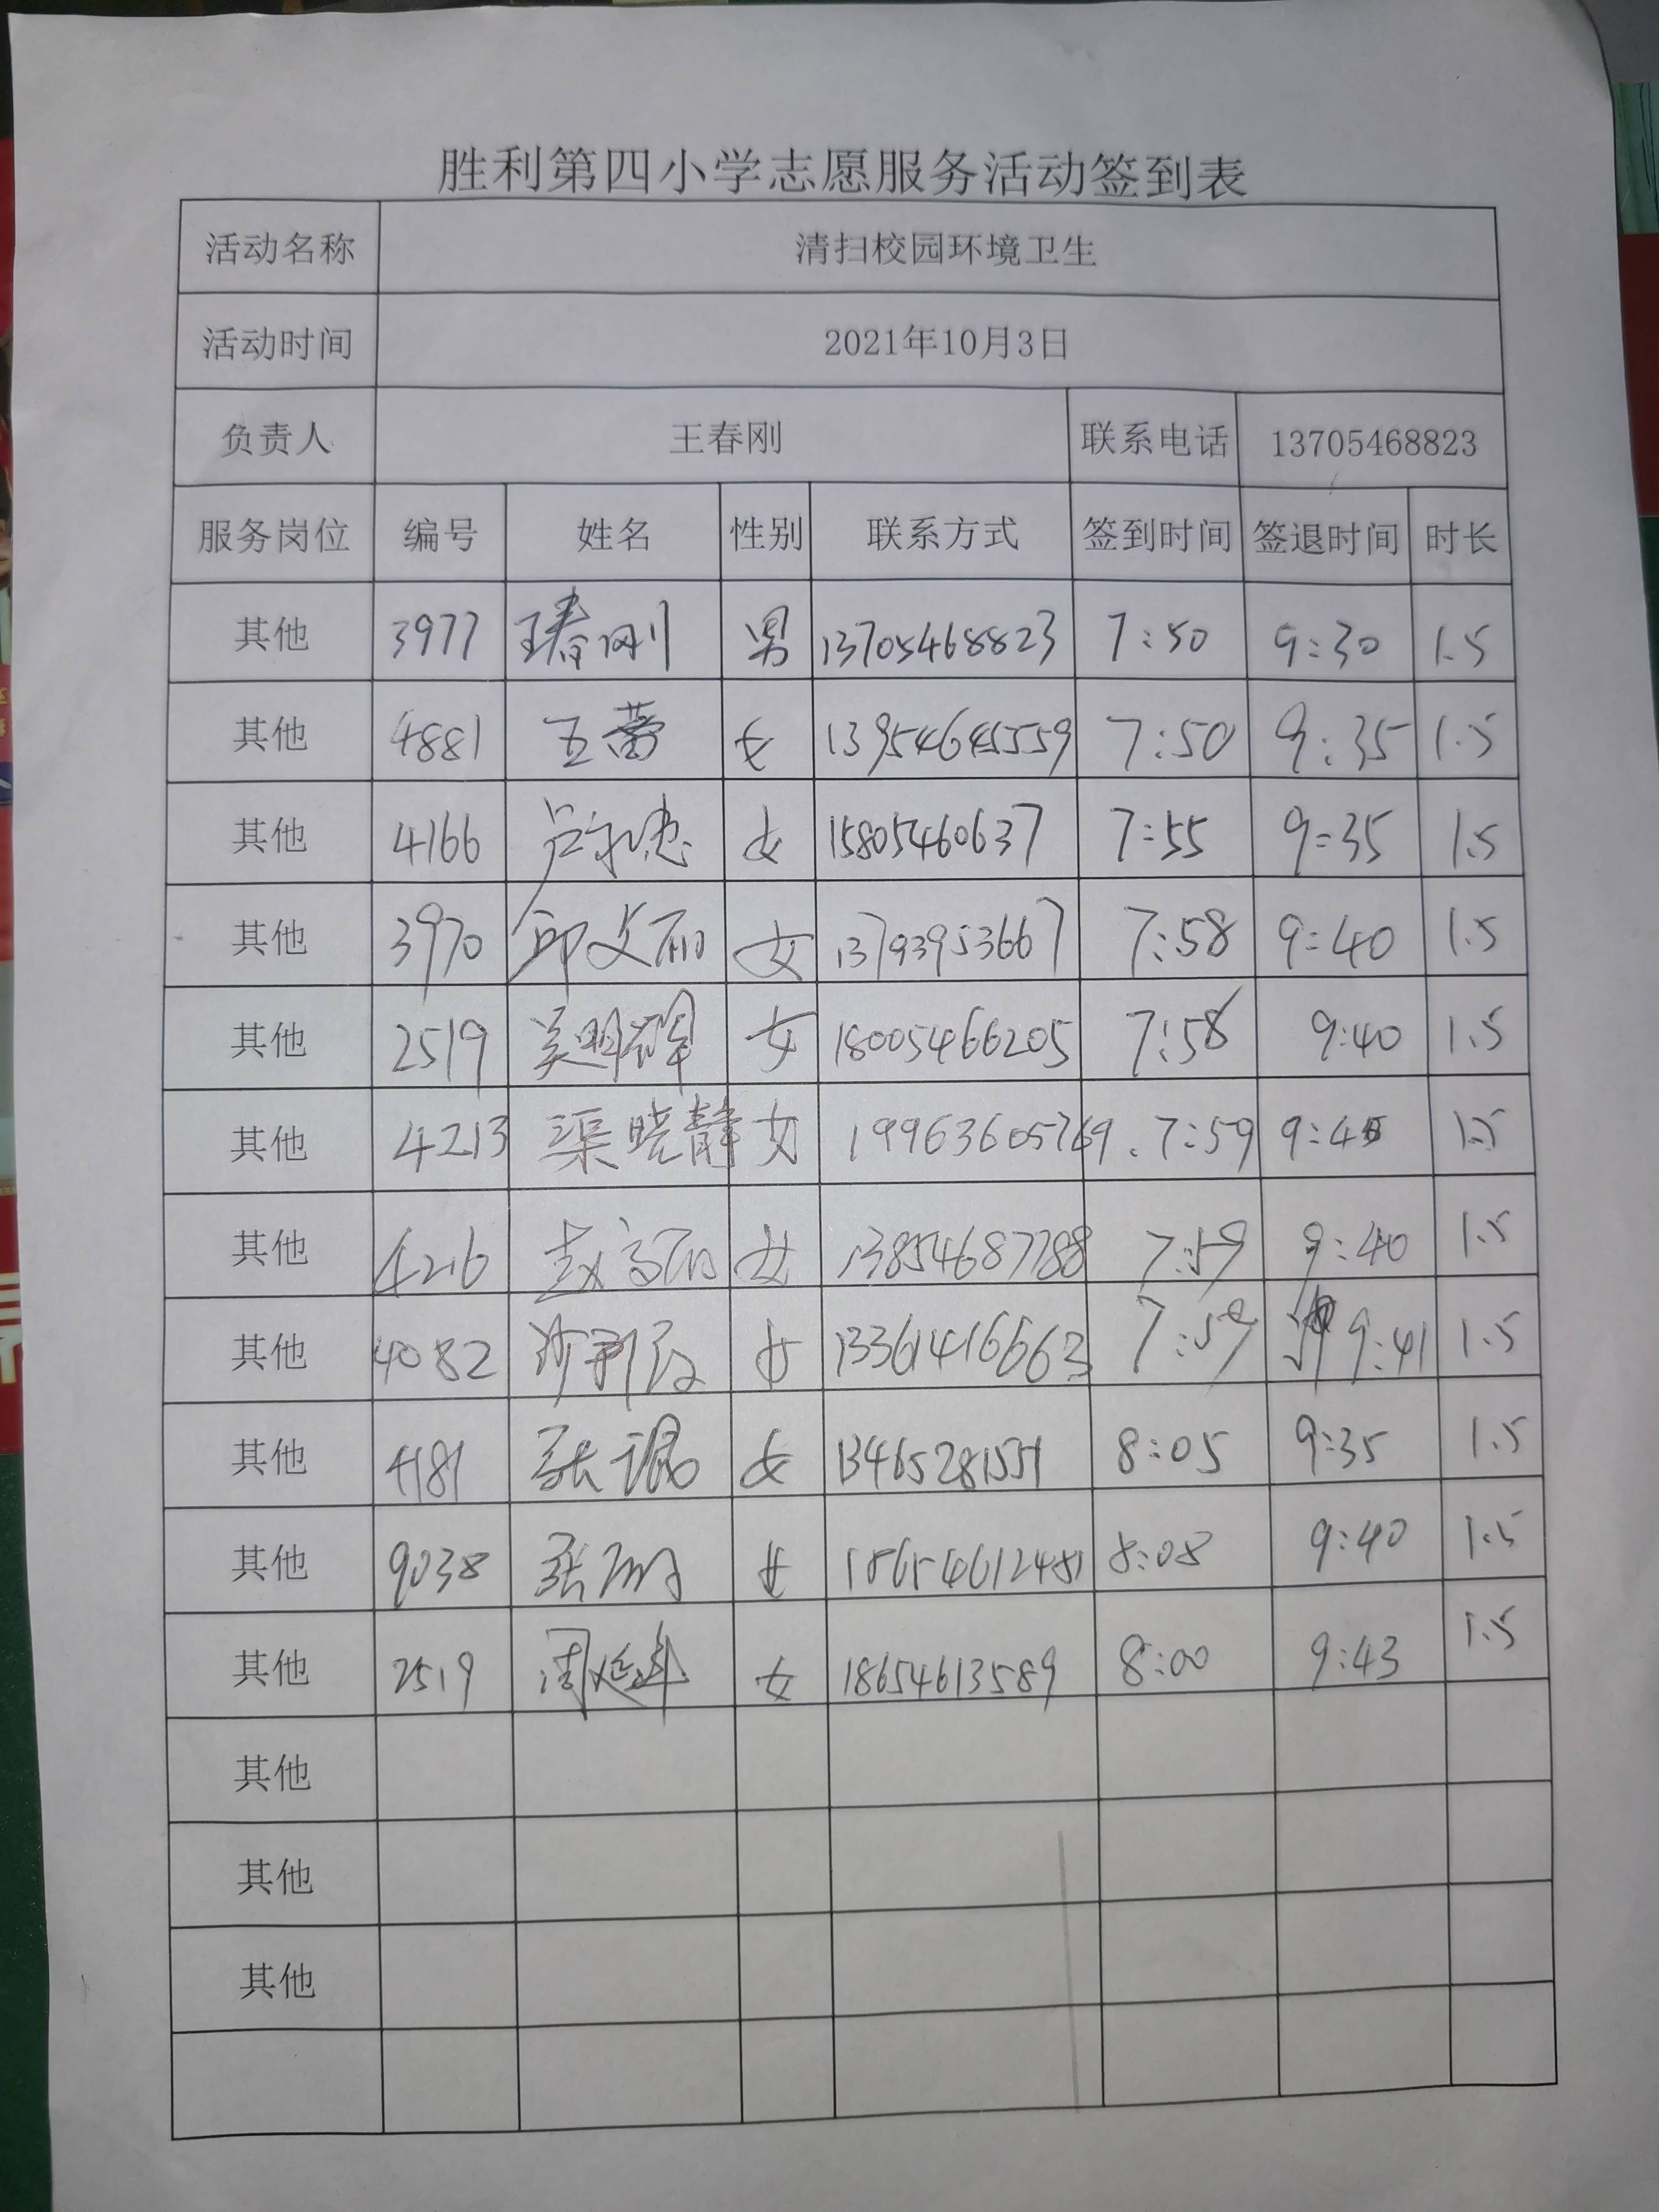 胜利第四小学志愿服务活动签到表
活动名称 清扫校园环境卫生
活动时间 2021年10月3日
负责人 王春刚 联系电话 13705468823
服务岗位 编号 姓名 性别 联系方式 签到时间 签退时间 时长
其他 3977 王春刚 男 13705468823 7:50 9:30 1.5
其他 4881 王蕾 女 13954645559 7:50 9:35 1.5
其他 4166 女 15805460637 7:55 9:35 1.5
其他 3970 邱文丽 女 13793953667 7:58 9:40 1.5
其他 2519 吴明 女 18005466205 7:58 9:40 1.5
其他 4213 渠晓静 女 19963605769 7:59 9:45 1.5
其他 4216 赵 丽 女 13854687788 7:59 9:40 1.5
其他 4082 女 13361416663 7:59 9:41 1.5
其他 4181 张 女 13465281551 8:05 9:35 1.5
其他 9038 张 女 18654612481 8:08 9:40 1.5
其他 2519 周延 女 18654613589 8:00 9:43 1.5
其他
其他
其他